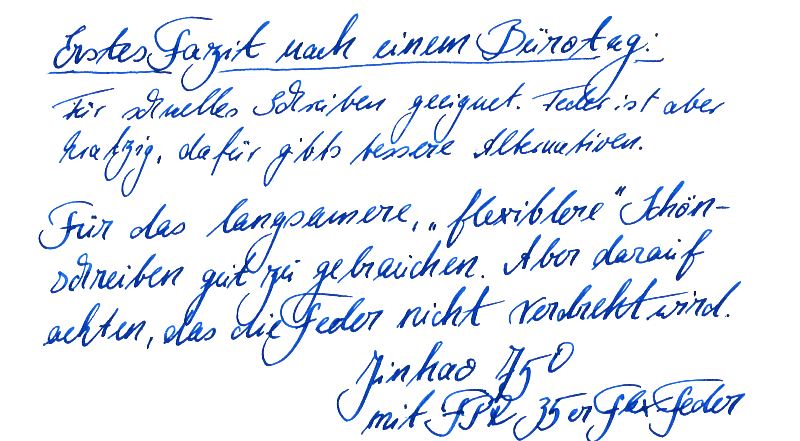 Erstes Fazit nach einem Bürotag:
Für schnelles Schreiben geeignet. Feder ist aber
kratzig, dafür gibts bessere Alternativen.
Für das langsamere, „flexiblere" Schön-
schreiben gut zu gebrauchen. Aber darauf
achten, das die Feder nicht verdreht wird.
Jinhao 750
mit FPR 35er Flex-Feder